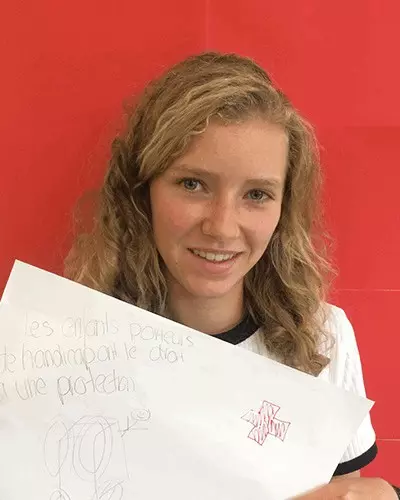 les enfants porteurs
de handicap ont le droit
à une protection